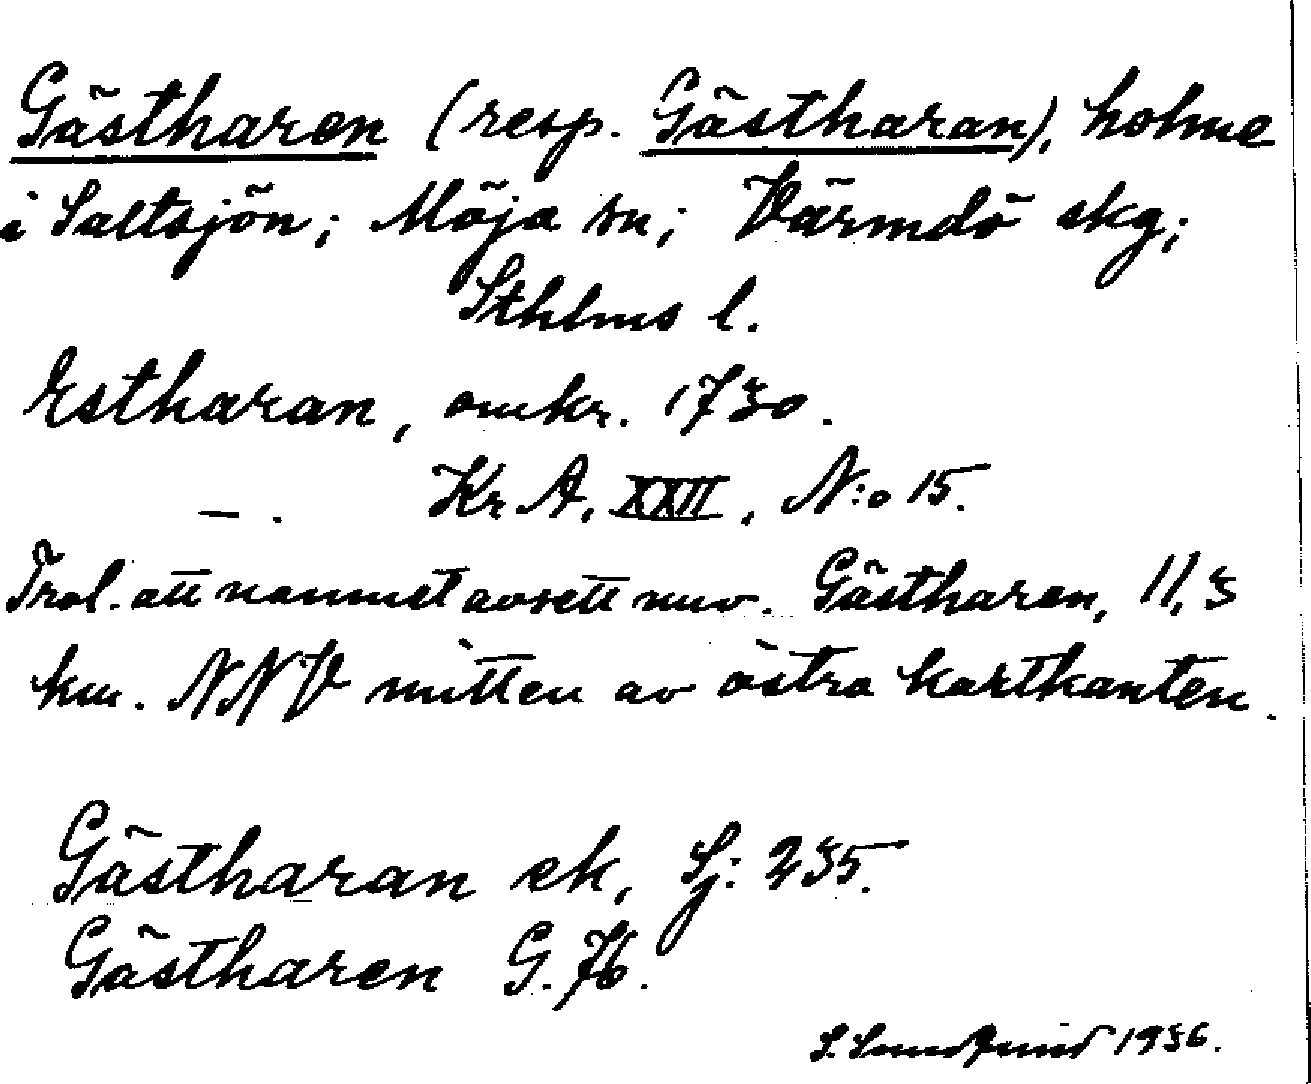 Gästharen (resp. Gästharan), holme
i Saltsjön; Möja sn; Värmdö skg;
Sthlms l.
Estharan, omkr. 1730.
— . Kr A, XXII, N:o 15.
Trol. att namnet avsett nuv. Gästharen, 11,3
km. NNV mitten av östra kartkanten.
Gästharan ek, Sj: 235.
Gästharen G. 76.
S. 1936.